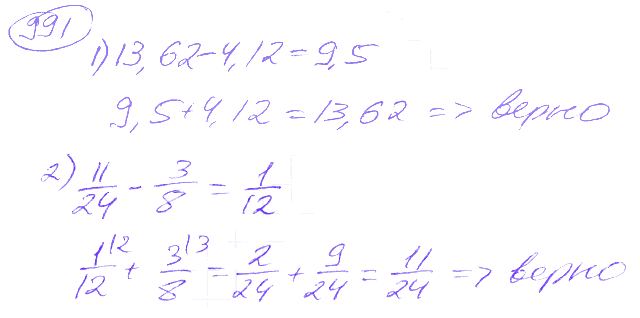 991
1) 13,62-4,12=9,5
9,5+4,12=13,62 => верно
2) 11/24 - 3/8 = 1/12
1/12 |2 + 3/8 |3 = 2/24 + 9/24 = 11/24 => верно